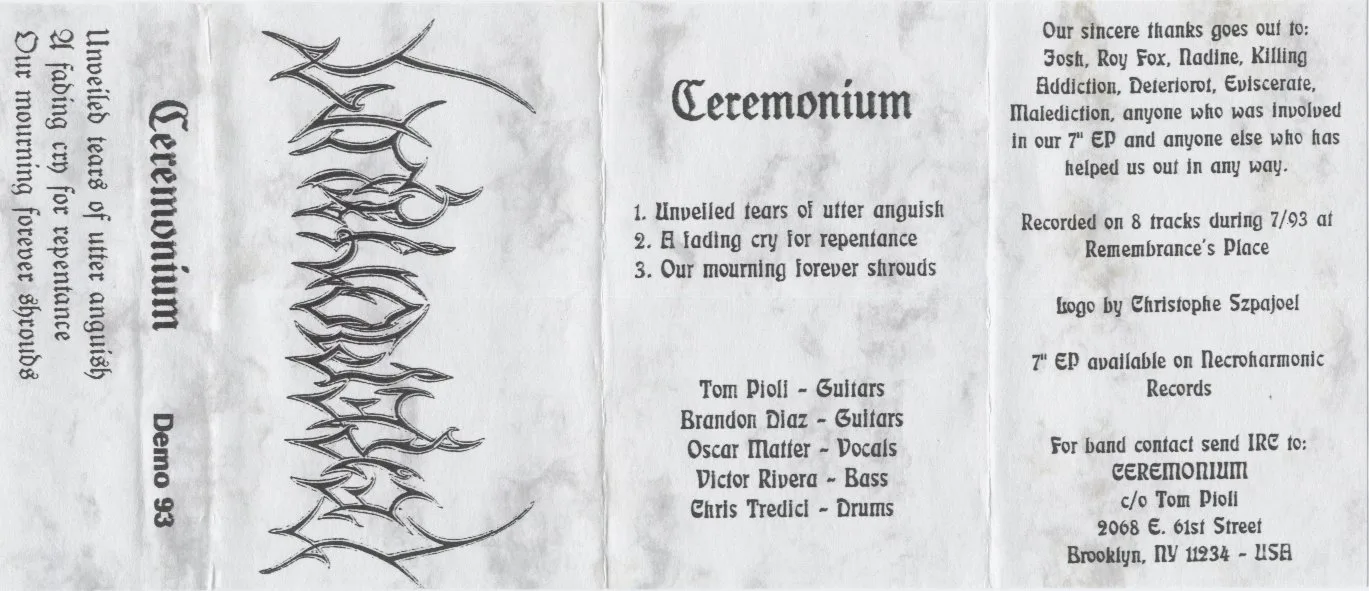 Unveiled tears of utter anguish
A fading cry for repentance
Our mourning forever shrouds
Ceremonium
Demo 93
Ceremonium
1. Unveiled tears of utter anguish
2. A fading cry for repentance
3. Our mourning forever shrouds
Tom Pioli - Guitars
Brandon Diaz - Guitars
Oscar Matter - Vocals
Victor Rivera - Bass
Chris Tredici - Drums
Our sincere thanks goes out to:
Josh, Roy Fox, Nadine, Killing
Addiction, Deteriorot, Eviscerate,
Malediction, anyone who was involved
in our 7" EP and anyone else who has
helped us out in any way.
Recorded on 8 tracks during 7/93 at
Remembrance's Place
Logo by Christophe Szpajoel
7" EP available on Necroharmonic
Records
For band contact send IRC to:
CEREMONIUM
c/o Tom Pioli
2068 E. 61st Street
Brooklyn, NY 11234 - USA